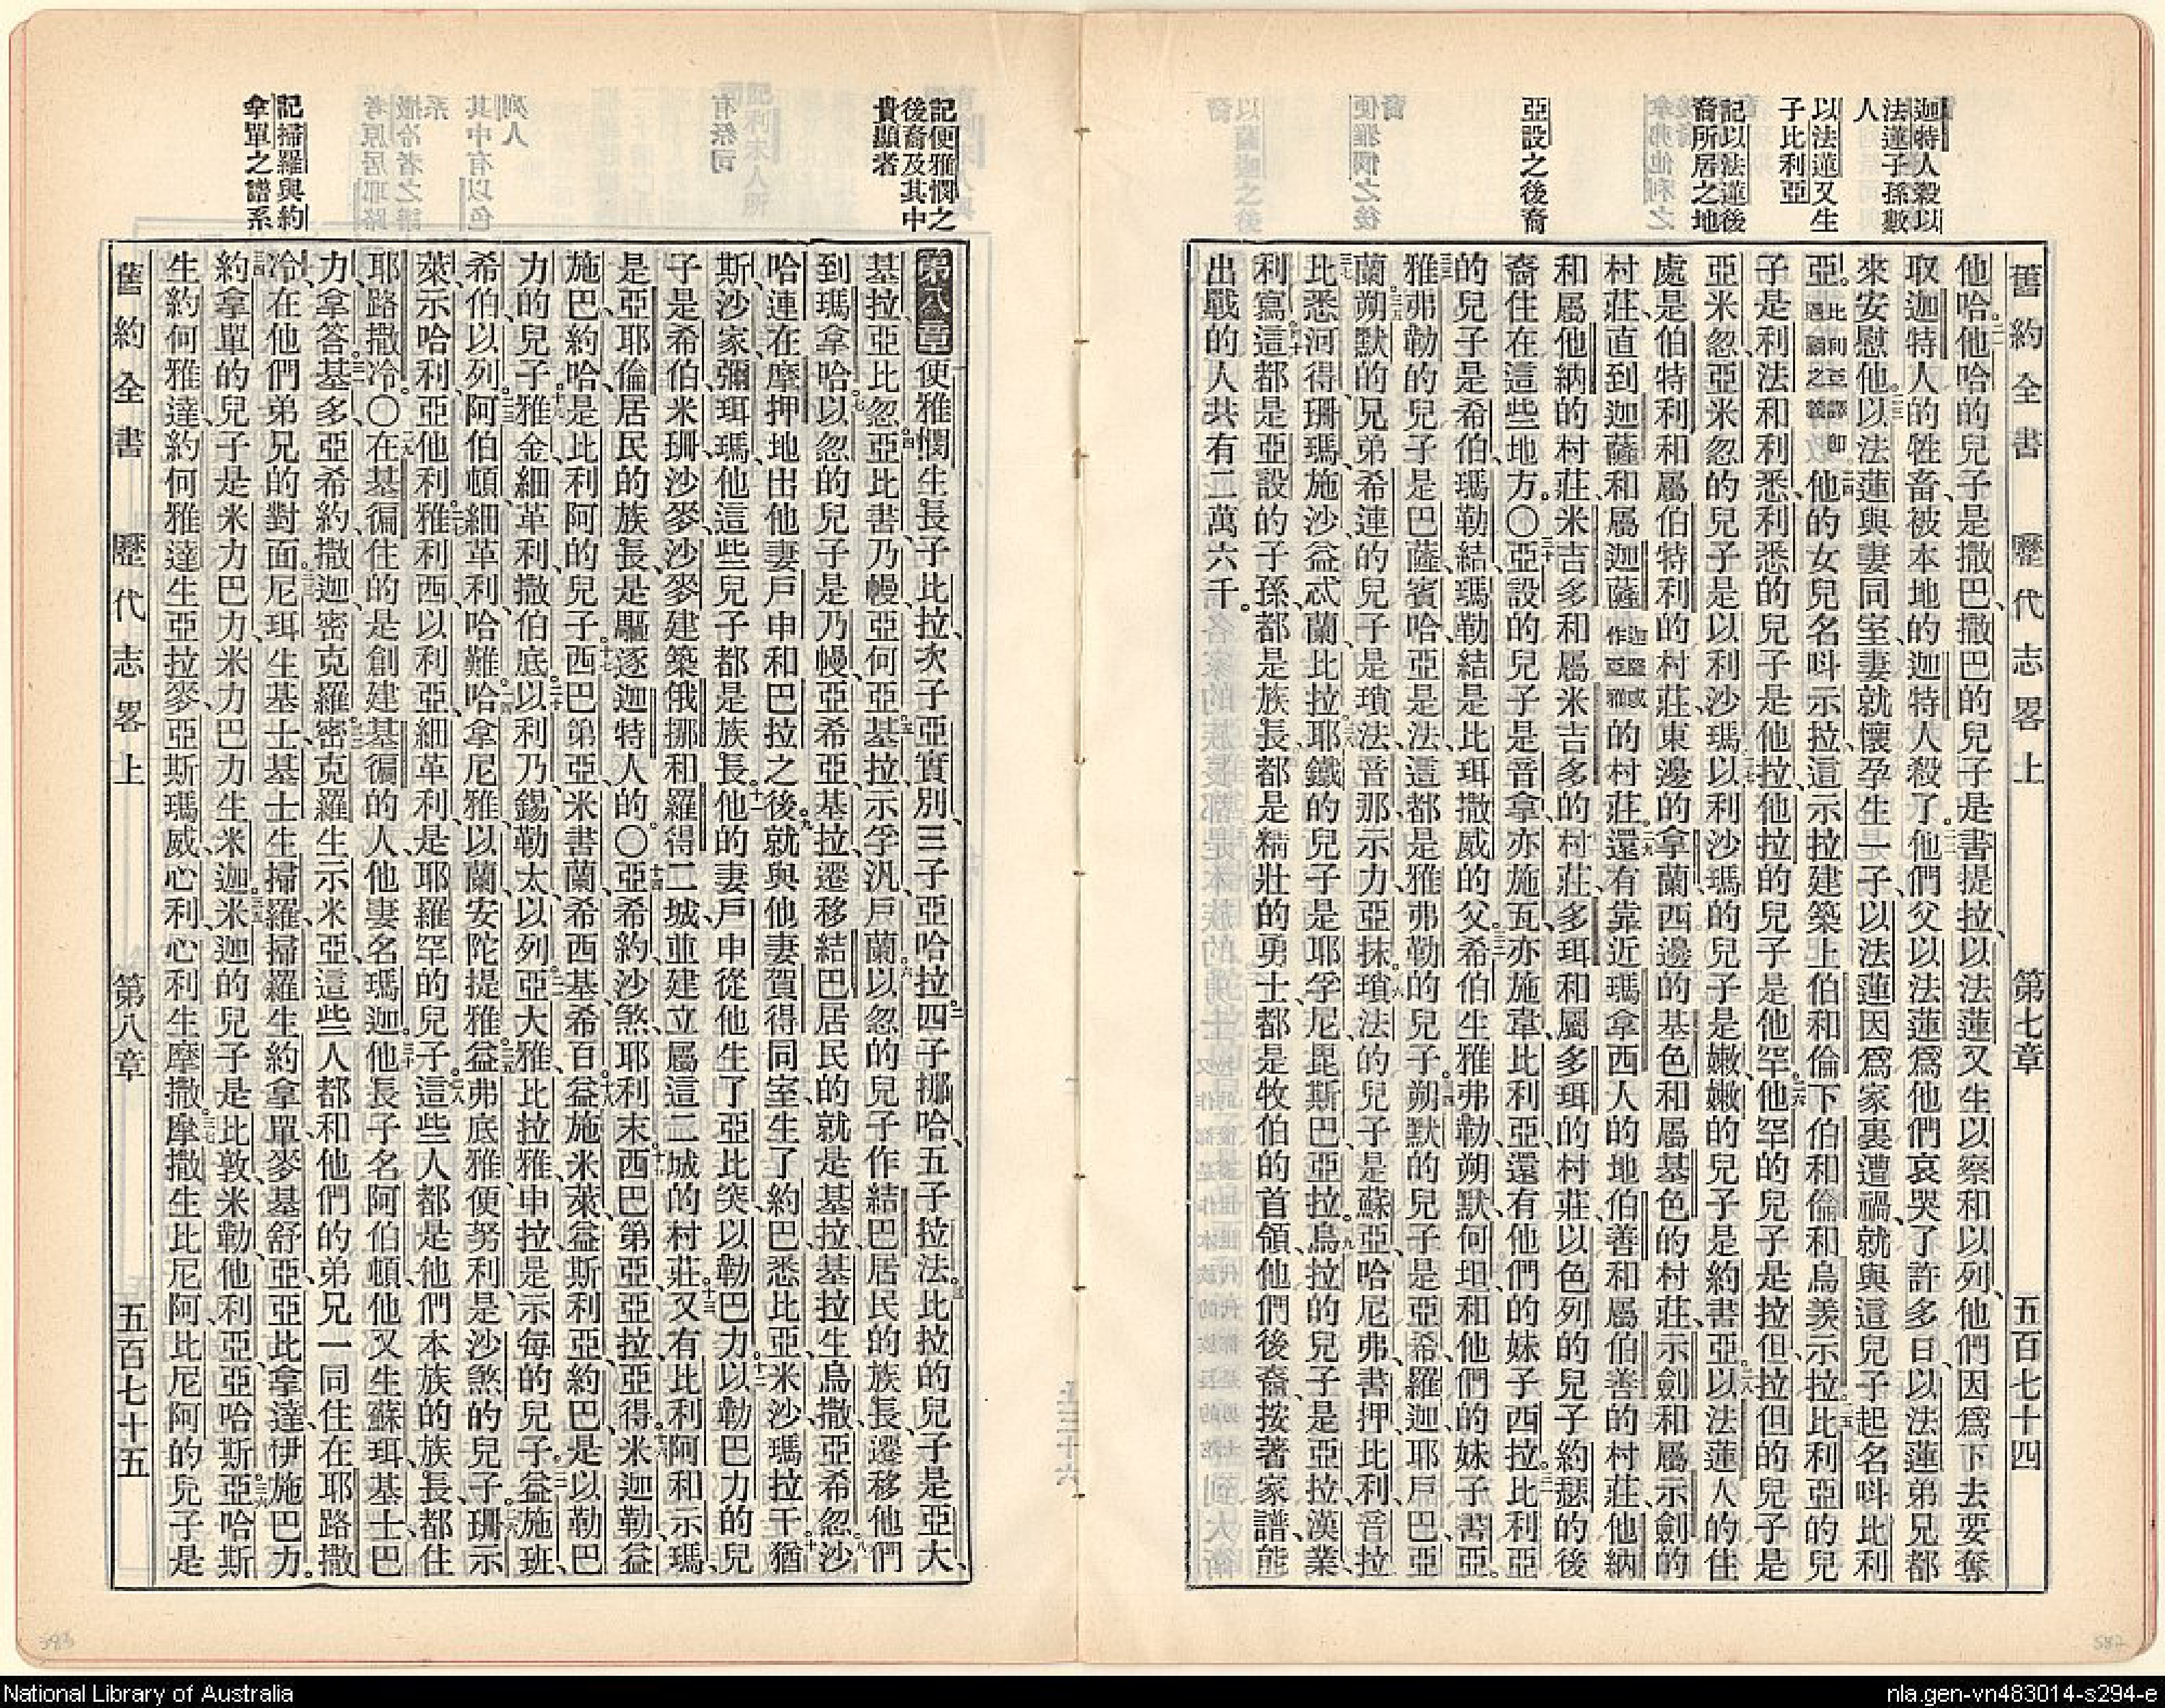 迦特人殺以
法蓮子孫數
人
以法蓮又生
子比利亞
記以法蓮後
裔所居之地
亞設之後裔
舊約全書 歷代志畧上 第七章 五百七十四
他哈他哈的兒子是撒巴撒巴的兒子是書提拉以法蓮又生以察和以列他們因爲下去要奪
取迦特人的牲畜被本地的迦特人殺了他們父以法蓮爲他們哀哭了許多日以法蓮弟兄都
來安慰他以法蓮與妻同室妻就懷孕生一子以法蓮因爲家裏遭禍就與這兒子起名呌比利
亞比利亞譯卽遇禍之義他的女兒名呌示拉這示拉建築上伯和倫下伯和倫和烏羨示拉比利亞的兒
子是利法和利悉利悉的兒子是他拉他拉的兒子是他罕他罕的兒子是拉但拉但的兒子是
亞米忽亞米忽的兒子是以利沙瑪以利沙瑪的兒子是嫩嫩的兒子是約書亞以法蓮人的住
處是伯特利和屬伯特利的村莊東邊的拿蘭西邊的基色和屬基色的村莊示劍和屬示劍的
村莊直到迦薩和屬迦薩迦薩或作亞雅的村莊還有靠近瑪拿西人的地伯善和屬伯善的村莊他納
和屬他納的村莊米吉多和屬米吉多的村莊多珥和屬多珥的村莊以色列的兒子約瑟的後
裔住在這些地方。〇亞設的兒子是音拿亦施瓦亦施韋比利亞還有他們的妹子西拉比利亞
的兒子是希伯瑪勒結瑪勒結是比珥撒威的父希伯生雅弗勒朔默何坦和他們的妹子書亞。
雅弗勒的兒子是巴薩賓哈亞是法這都是雅弗勒的兒子朔默的兒子是亞希羅迦耶戶巴亞
蘭朔默的兄弟希連的兒子是瑣法音那示力亞抹瑣法的兒子是蘇亞哈尼弗書押比利音拉
比悉河得珊瑪施沙益忒蘭比拉耶鐵的兒子是耶孚尼毘斯巴亞拉烏拉的兒子是亞拉漢業
利寫這都是亞設的子孫都是族長都是精壯的勇士都是牧伯的首領他們後裔按著家譜能
出戰的人共有二萬六千。
記便雅憫之
後裔及其中
貴顯者
記掃羅與約
拿單之譜系
第八章便雅憫生長子比拉次子亞實別三子亞哈拉四子挪哈五子拉法比拉的兒子是亞大
基拉亞比忽亞比書乃幔亞何亞基拉示孚汛戶蘭以忽的兒子作結巴居民的族長遷移他們
到瑪拿哈以忽的兒子是乃幔亞希亞基拉遷移結巴居民的就是基拉基拉生烏撒亞希忽沙
哈連在摩押地出他妻戶申和巴拉之後就與他妻賀得同室生了約巴悉比亞米沙瑪拉干猶
斯沙家彌珥瑪他這些兒子都是族長他的妻戶申從他生了亞比突以勒巴力以勒巴力的兒
子是希伯米珊沙麥沙麥建築俄挪和羅得二城並建立屬這二城的村莊又有比利阿和示瑪
是亞耶倫居民的族長是驅逐迦特人的。〇亞希約沙煞耶利末西巴第亞亞拉亞得米迦勒益
施巴約哈是比利阿的兒子西巴第亞米書蘭希西基希百益施米萊益斯利亞約巴是以勒巴
力的兒子雅金細革利撒伯底以利乃錫勒太以列亞大雅比拉雅申拉是示每的兒子益施班
希伯以列阿伯頓細革利哈難哈拿尼雅以蘭安陀提雅益弗底雅便努利是沙煞的兒子珊示
萊示哈利亞他利雅利西以利亞細革利是耶羅罕的兒子這些人都是他們本族的族長都住
耶路撒冷。〇在基徧住的是創建基徧的人他妻名瑪迦他長子名阿伯頓他又生蘇珥基士巴
力拿答基多亞希約撒迦密克羅密克羅生示米亞這些人都和他們的弟兄一同住在耶路撒
冷在他們弟兄的對面尼珥生基士基士生掃羅掃羅生約拿單麥基舒亞亞比拿達伊施巴力。
約拿單的兒子是米力巴力米力巴力生米迦米迦的兒子是比敦米勒他利亞亞哈斯亞哈斯
生約何雅達約何雅達生亞拉麥亞斯瑪威心利心利生摩撒摩撒生比尼阿比尼阿的兒子是
舊約全書 歷代志畧上 第八章 五百七十五
583
582
National Library of Australia
nla.gen-vn483014-s294-e